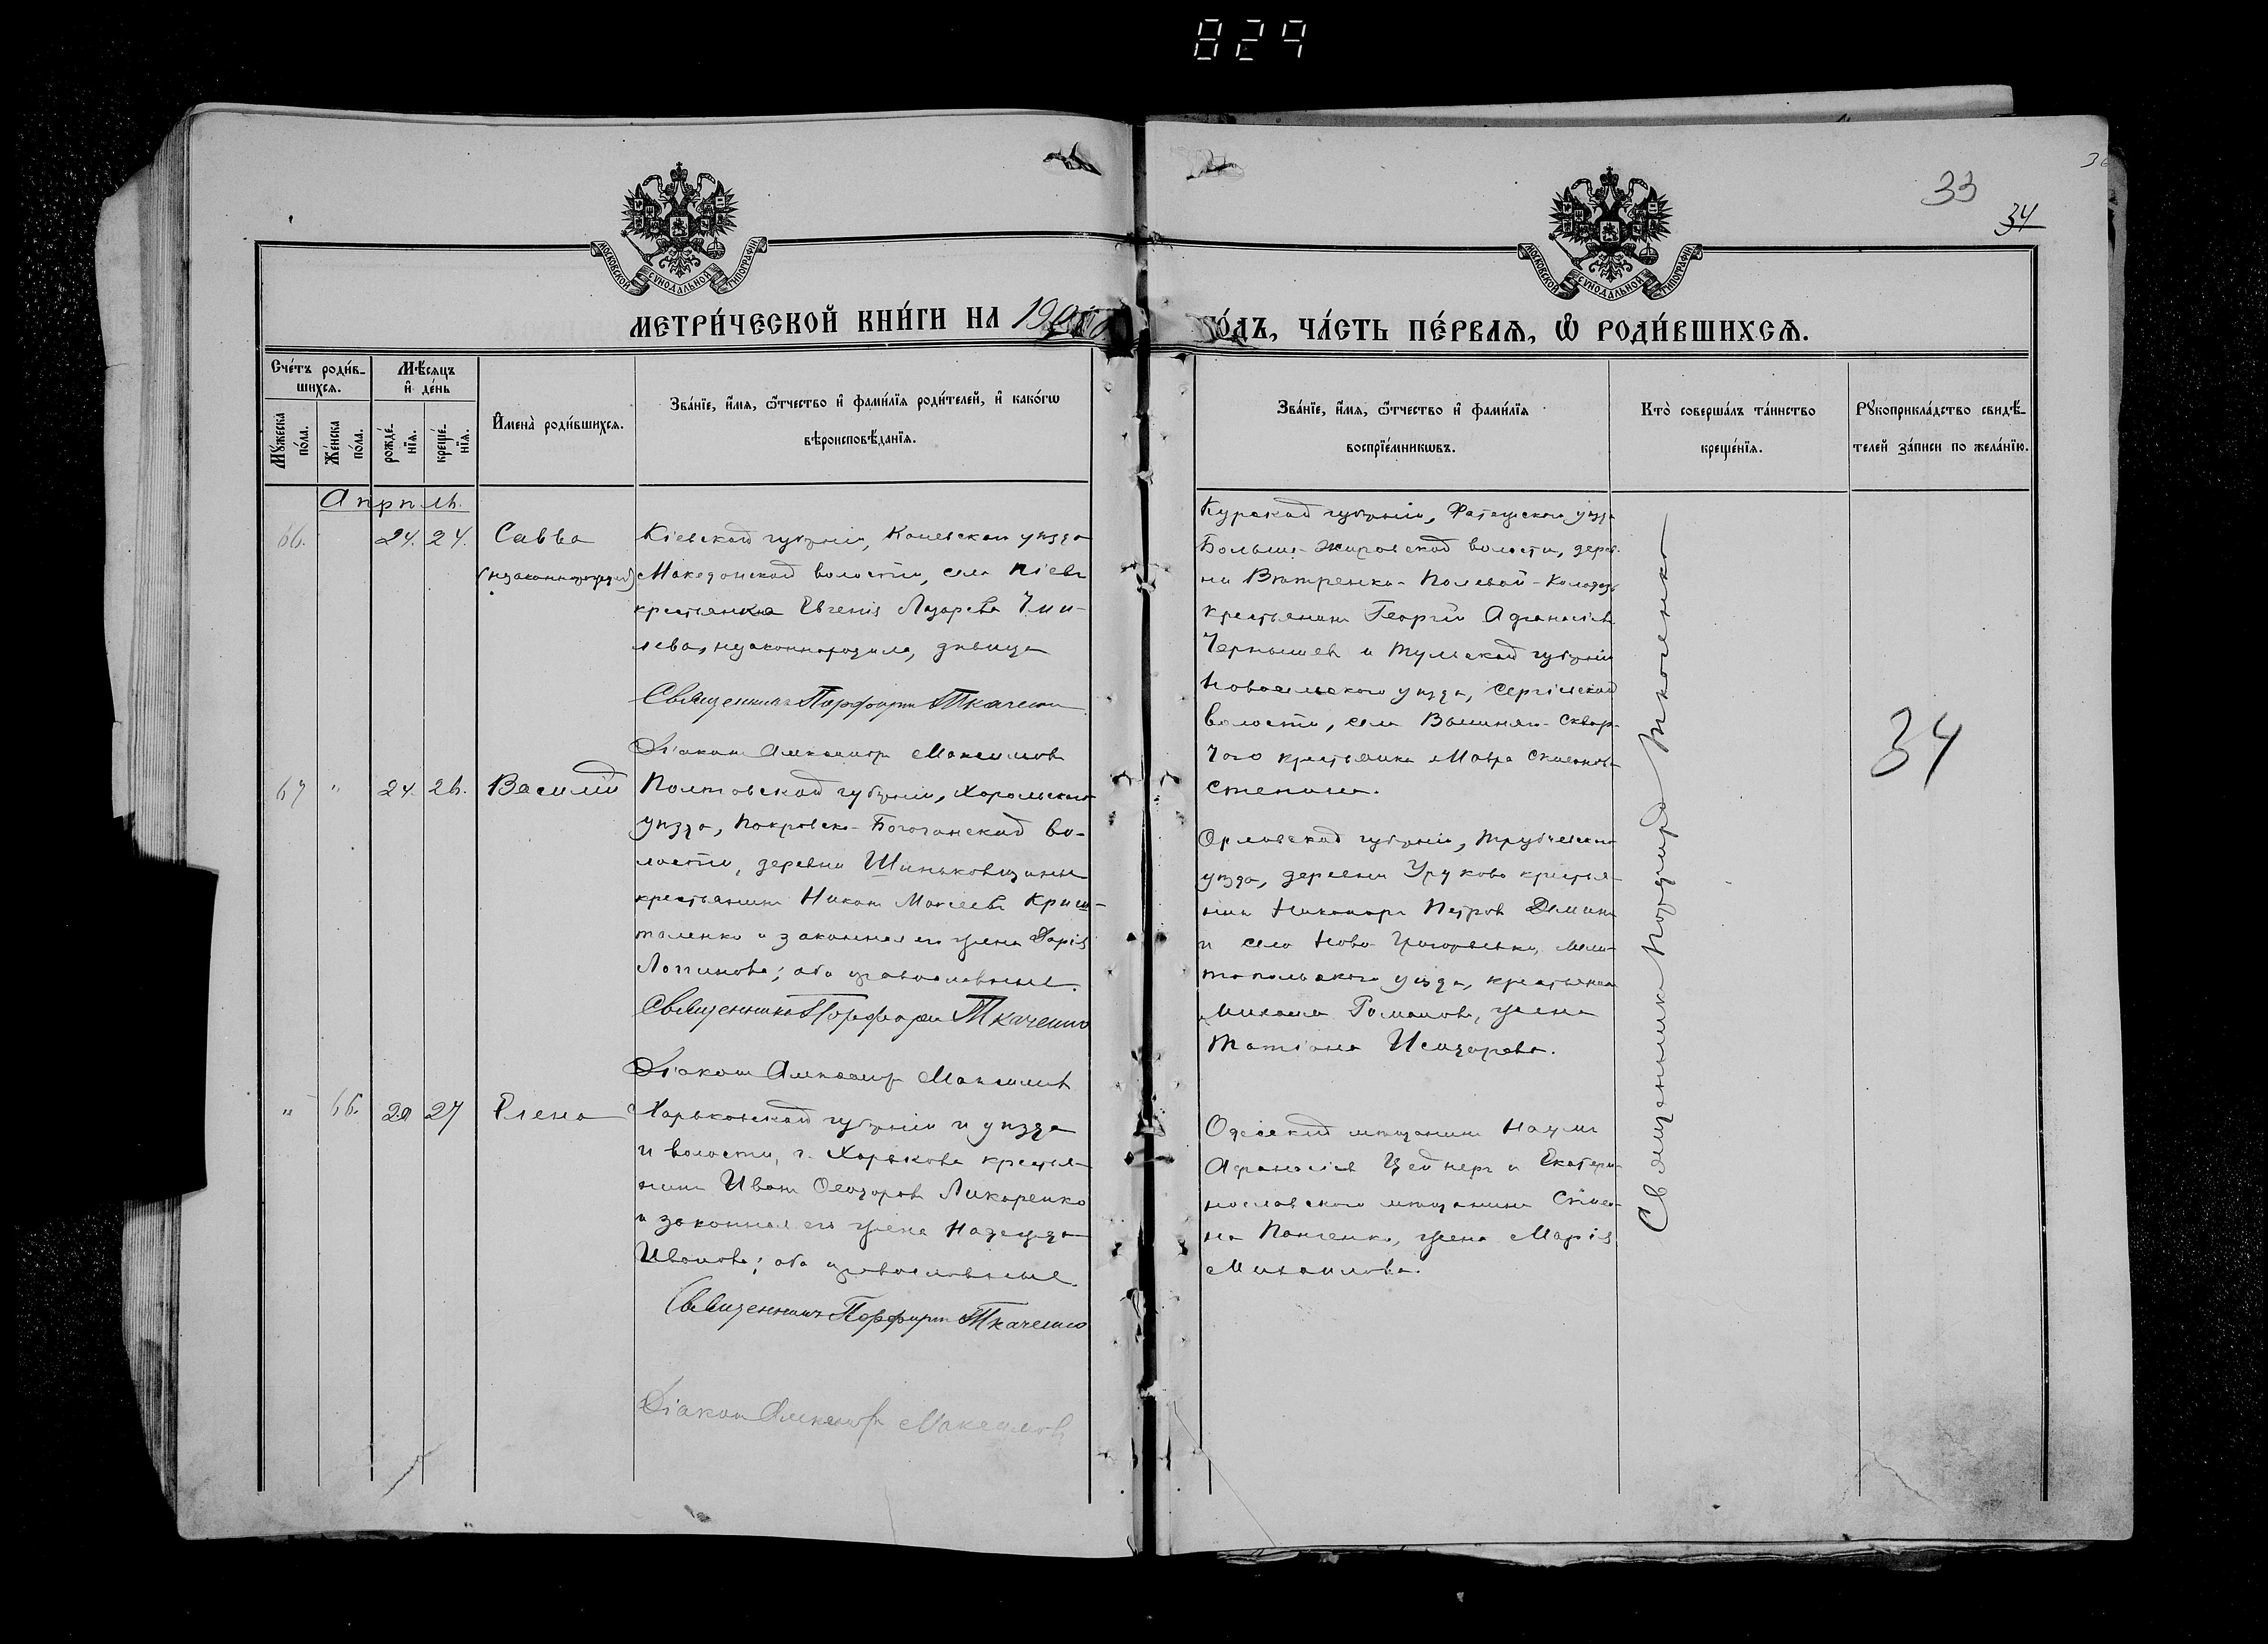 829
33
34
МОСКОВСКОЙ СУНОДАЛЬНОЙ ТИПОГРАФІИ
МОСКОВСКОЙ СУНОДАЛЬНОЙ ТИПОГРАФІИ
МЕТРИ́ЧЕСКОЙ КНИ́ГИ НА 190
ГО́ДЪ, ЧА́СТЬ ПЕ́РВАѦ, Ѽ РОДИ́ВШИХСѦ.
Сче́тъ роди́в-
шихсѧ.
Мѣ́сѧцъ
и҆ де́нь
Мꙋ́жеска
по́ла.
Же́нска
по́ла.
рожде́-
нїѧ.
креще́-
нїѧ.
И҆мена̀ роди́вшихсѧ.
Зва́нїе, и҆́мѧ, ѻ҆́тчество и҆ фами́лїѧ роди́телей, и҆ како́гѡ
вѣроисповѣ́данїѧ.
Зва́нїе, и҆́мѧ, ѻ҆́тчество и҆ фами́лїѧ
воспрїе́мникѡвъ.
Кто̀ соверша́лъ та́инство
креще́нїѧ.
Рꙋкоприкла́дство свидѣ́-
телей за́писи по жела́нїю.
Апрѣль.
66. 24. 24. Савва
(незаконнорожден)
Кіевской губерніи, Каневскаго уѣзда
Македонской волости, села
крестьянка Евгенія Лазарева
незаконнорожд, дѣвица
Священникъ Порфирій Ткаченко
Діаконъ Александръ Максимовъ
Курской губерніи, Фатежскаго уѣзда
Больше-Жировской волости, дерев-
ни Вѣтренка-Полевой-Колодезь
крестьянинъ Георгій Афанасіевъ
Чернышевъ и Тульской губерніи
Новосильскаго уѣзда, Сергіевской
волости, села Вышняго-Сквор-
чего крестьянка Мавра
67 " 24. 26. Василій
Полтавской губерніи, Хорольскаго
уѣзда, Покровско-Богочанской во-
лости, деревни Шиньковщины
крестьянинъ Никонъ Моисеевъ Криш-
таленко и законная его жена Дарія
Логинова; оба православные.
Священникъ Порфирій Ткаченко
Діаконъ Александръ Максимовъ
Орловской губерніи, Трубчевскаго
уѣзда, деревни крестья-
нинъ Никаноръ Петровъ Деминъ
и села Ново-Григорьевки, Мели-
топольскаго уѣзда, крестьянина
Михаила Романова, жена
Татіана Исидорова.
" 66. 27 Елена
Харьковской губерніи и уѣзда
и волости, г. Харькова крестья-
нинъ Иванъ Ѳеодоровъ Ликаренко
и законная его жена Надежда
Иванова; оба православные.
Священникъ Порфирій Ткаченко
Діаконъ Александръ Максимовъ
Одесскій мѣщанинъ Наумъ
Афанасіевъ Цейнеръ и Екатери-
нославскаго мѣщанина Степа-
на Панченко, жена Марія
Михаилова.
Священникъ Порфирій Ткаченко
34